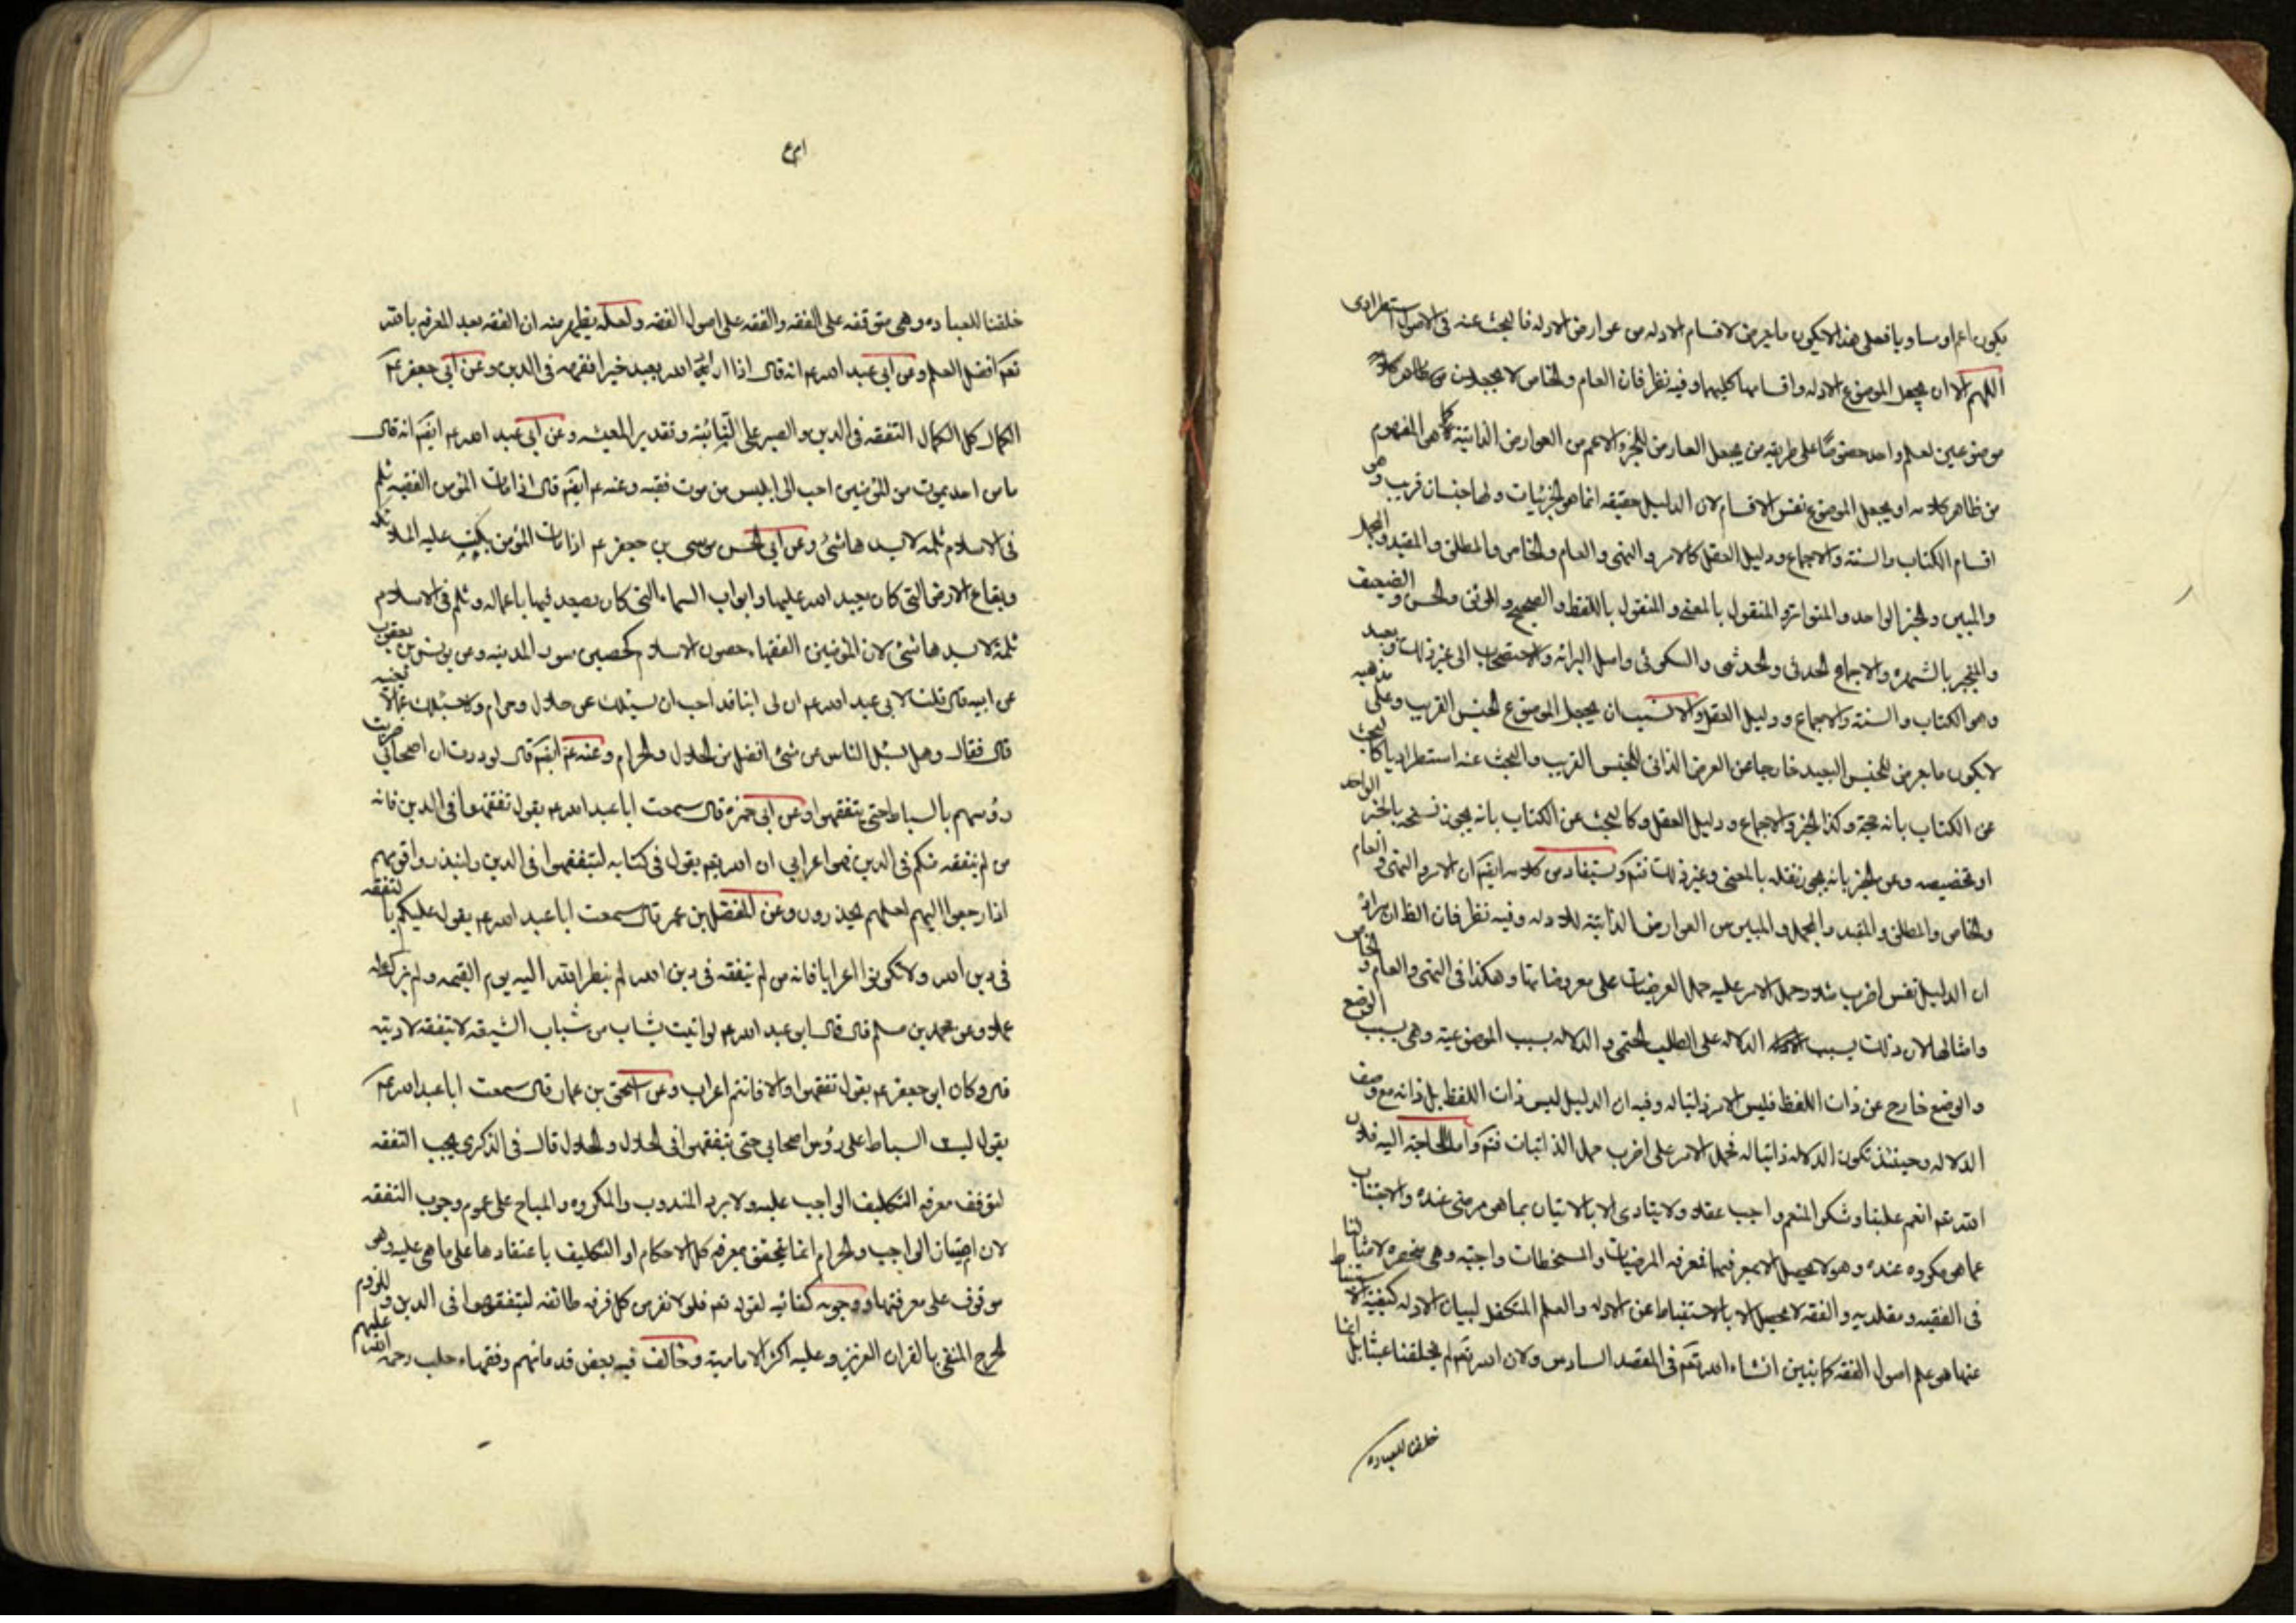 يكون اعم او مساويا فعلى هذا لا يكون ما يعرض لاقسام الادله من عوارض الادله فالبحث عنه فى الاصول استطرادى
اللهم الا ان يجعل الموضوع الادله واقسامها كليهما وفيه نظر فان العام والخاص لا يجعلان
موضوعين لعلم واحد خصوصًا على طريقه من يجعل العارض للجزء الاعم من العوارض الذاتية كما هو المفهوم
من ظاهر كلامه او يجعل الموضوع نفس الاقسام لان الدليل حقيقه انما هو الجزئيات ولها جنسان قريب وهو
اقسام الكتاب والسنة والاجماع ودليل العقل كالامر والنهى والعام والخاص والمطلق والمقيد والمجمل
والمبين والخبر الواحد والمتواتر والمنقول بالمعنى والمنقول باللفظ والصحيح والموثق والحسن والضعيف
والمنجبر بالشهره والاجماع الحدسى والسكوتى واصل البرائه والاستصحاب الى غير ذلك وبعيد
وهو الكتاب والسنة والاجماع ودليل العقل والانسب ان يجعل الموضوع الجنس القريب وعلى مذهبه
لا يكون ما يعرض للجنس البعيد خارجا عن العرض الذاتى للجنس القريب والبحث عنه استطراديا كالبحث
عن الكتاب بانه حجة وكذا الخبر والاجماع ودليل العقل وكالبحث عن الكتاب بانه يجوز نسخه بالخبر الواحد
او تخصيصه وعن الخبر بانه يجوز نقله بالمعنى وغير ذلك فتم ويستفاد من كلامه ايضا ان الامر والنهى والعام
والخاص والمطلق والمقيد والمجمل والمبين من العوارض الذاتية للادله وفيه نظر فان الظ ان مراده
ان الدليل نفس اضرب مثلا وحمل الامر عليه حمل العرضيات على معروضاتها وهكذا فى النهى والعام والخاص
وامثالها لان ذلت بسبب الدلاله على الطلب الحتمى والدلاله بسبب الموضوعية وهى بسبب الوضع
والوضع خارج عن ذات اللفظ فليس الامر ذاتيا له وفيه ان الدليل ليس ذات اللفظ بل ذاته مع وصف
الدلاله وحينئذ تكون الدلاله ذاتيا له فحمل الامر على اضرب حمل الذاتيات فتم واما الحاجة اليه فلان
الله تعم انعم علينا وشكر المنعم واجب عقلا ولا يتادى الا بالاتيان بما هو مرضى عنده والاجتناب
عما هو مكروه عنده وهو لا يحصل الا بمعرفتهما فمعرفه المرضيات والمسخطات واجبة وهى منحصره لامثالنا
فى الفقيه ومقلديه والفقه لا يحصل الا بالاستنباط عن الادله والعلم المتكفل لبيان الادله كيفية الاستنباط
عنها هو علم اصول الفقه كما نبين انشاء الله تعم فى المقصد السادس ولان الله تعم لم يخلقنا عبثا بل انما
خلقنا للعباده
خلقنا للعباده وهى متوقفه على الفقه والفقه على اصول الفقه ولعله يظهر منه ان الفقه بعد المعرفه بالله
تعم افضل العلم وعن ابى عبد الله عم انه قال اذا اراد الله بعبد خيرا فقهه فى الدين وعن ابى جعفر عم
الكمال كل الكمال التفقه فى الدين والصبر على النائبة وتقدير المعيشه وعن ابى عبد الله عم ايضا انه قال
ما من احد يموت من المؤمنين احب الى ابليس من موت فقيه وعنه عم ايضا قال اذا مات المؤمن الفقيه ثلم
فى الاسلام ثلمة لا يسدها شئ وعن ابى الحسن موسى بن جعفر عم اذا مات المؤمن بكت عليه الملائكه
وبقاع الارض التى كان يعبد الله عليها وابواب السماء التى كان يصعد فيها باعماله وثلم فى الاسلام
ثلمة لا يسدها شئ لان المؤمنين الفقهاء حصون الاسلام كحصن سور المدينه وعن يونس بن يعقوب
عن ابيه قال قلت لابى عبد الله عم ان لى ابنا قد احب ان يسئلك عن حلال وحرام ولا يسئلك عما لا يعنيه
قال فقال وهل يسئل الناس عن شئ افضل من الحلال والحرام وعنه عم ايضا قال لوددت ان اصحابى ضربت
رؤسهم بالسياط حتى يتفقهوا وعن ابى حمزة قال سمعت ابا عبد الله عم يقول تفقهوا فى الدين فانه
من لم يتفقه منكم فى الدين فهو اعرابى ان الله تعم يقول فى كتابه ليتفقهوا فى الدين ولينذروا قومهم
اذا رجعوا اليهم لعلهم يحذرون وعن المفضل بن عمر قال سمعت ابا عبد الله عم يقول عليكم بالتفقه
فى دين الله ولا تكونوا اعرابا فانه من لم يتفقه فى دين الله لم ينظر الله اليه يوم القيمه ولم يزك له
عملا وعن محمد بن مسلم قال قال ابو عبد الله عم لو اتيت بشاب من شباب الشيعه لا يتفقه لادبته
قال وكان ابو جعفر عم يقول تفقهوا والا فانتم اعراب وعن اسحق بن عمار قال سمعت ابا عبد الله عم
يقول ليت السياط على رؤس اصحابى حتى يتفقهوا فى الحلال والحلال قال فى الذكرى يجب التفقه
لتوقف معرفه التكليف الواجب عليه ولا يرد المندوب والمكروه والمباح على عموم وجوب التفقه
لان امتياز الواجب والحرام انما يتحقق بمعرفه كل الاحكام او التكليف باعتقادها على ما هى عليه وهو
موقوف على معرفتها ووجوبه كفائيه لقوله تعم فلولا نفر من كل فرقه طائفه ليتفقهوا فى الدين وللزوم
الحرج المنفى بالقران العزيز وعليه اكثر الامامية وخالف فيه بعض قدمائهم وفقهاء حلب رحمة الله عليهم